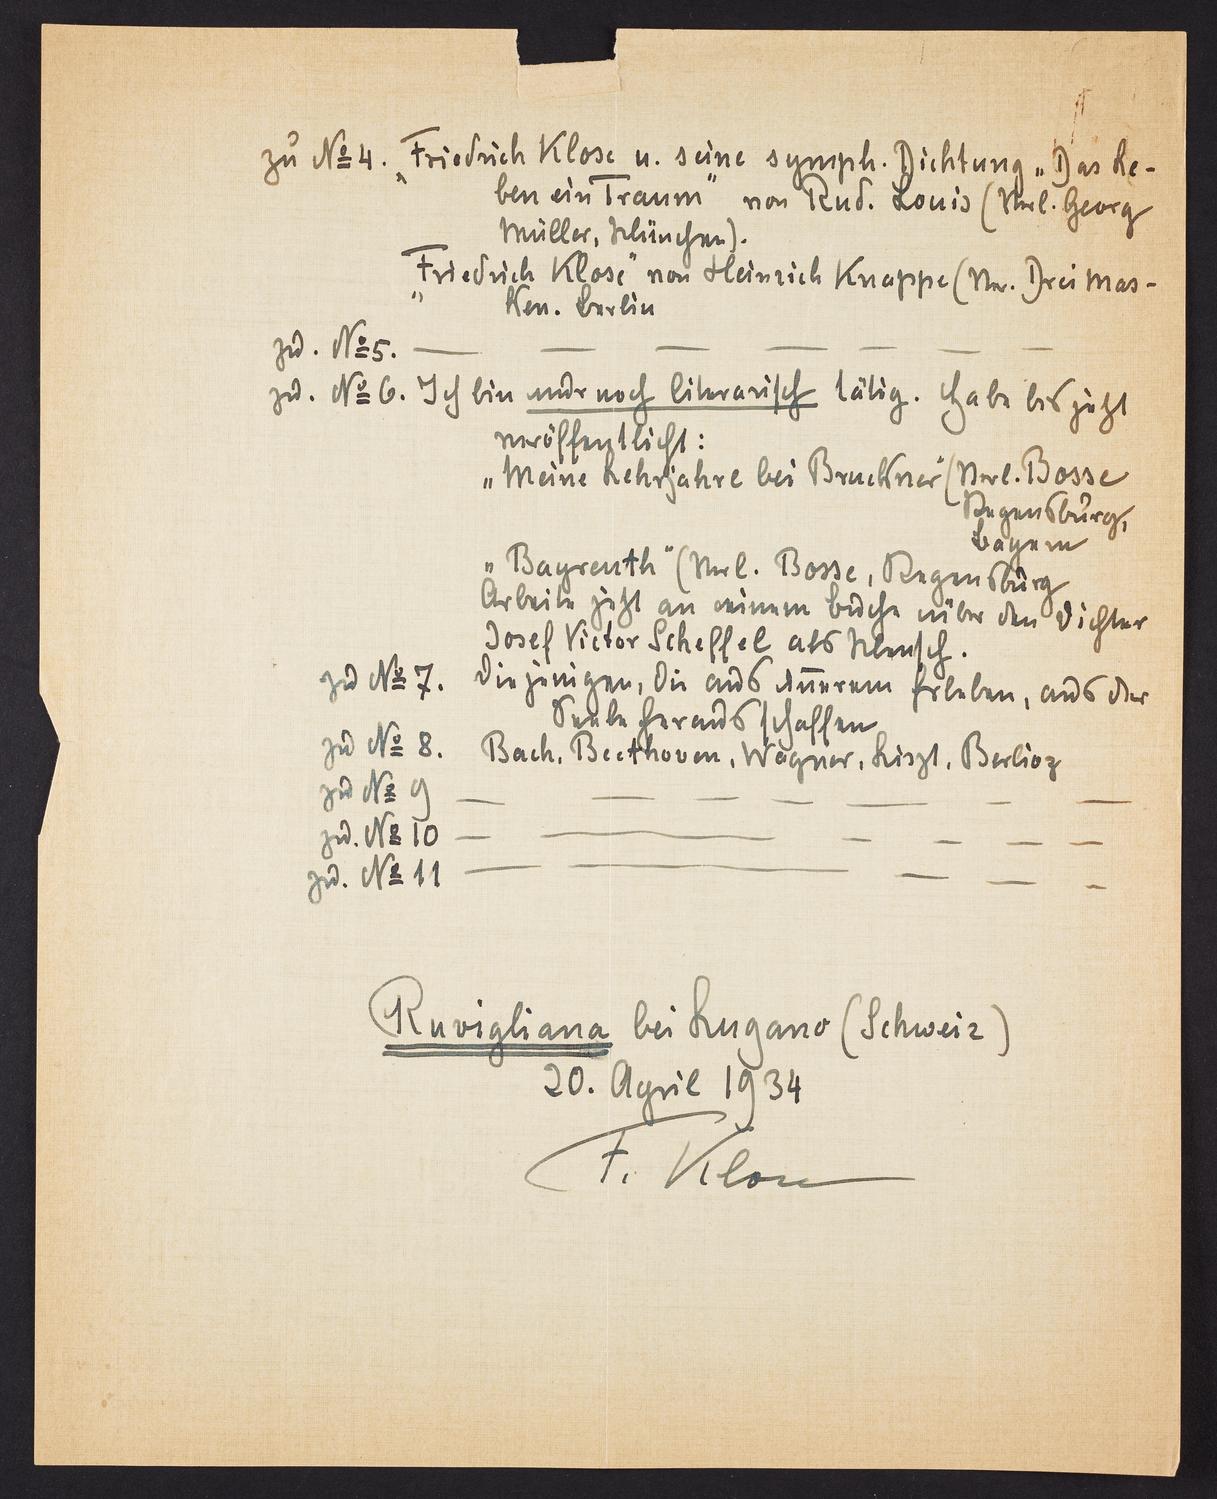 zu No 4. „Friedrich Klose u. seine symph. Dichtung „Das Le-
ben ein Traum" von Rud. Louis (Verl. Georg
Müller, München).
„Friedrich Klose" von Heinrich Knappe (Ver. Drei Mas-
ken. Berlin
zu. No 5. — — — — — — —
zu. No 6. Ich bin nur noch literarisch tätig. Habe bis jetzt
veröffentlicht:
„Meine Lehrjahre bei Bruckner" (Verl. Bosse
Regensburg,
Bayern
„Bayreuth" (Verl. Bosse, Regensburg
Arbeite jetzt an einem Buche über den Dichter
Josef Victor Scheffel als Mensch.
zu No 7. Diejenigen, die aus innerem Erleben, aus der
Seele heraus schaffen
zu No 8. Bach, Beethoven, Wagner, Liszt, Berlioz
zu No 9 — — — — — — —
zu. No 10 — — — — — —
zu. No 11 — — — — —
Ruvigliana bei Lugano (Schweiz)
20. April 1934
F. Klose